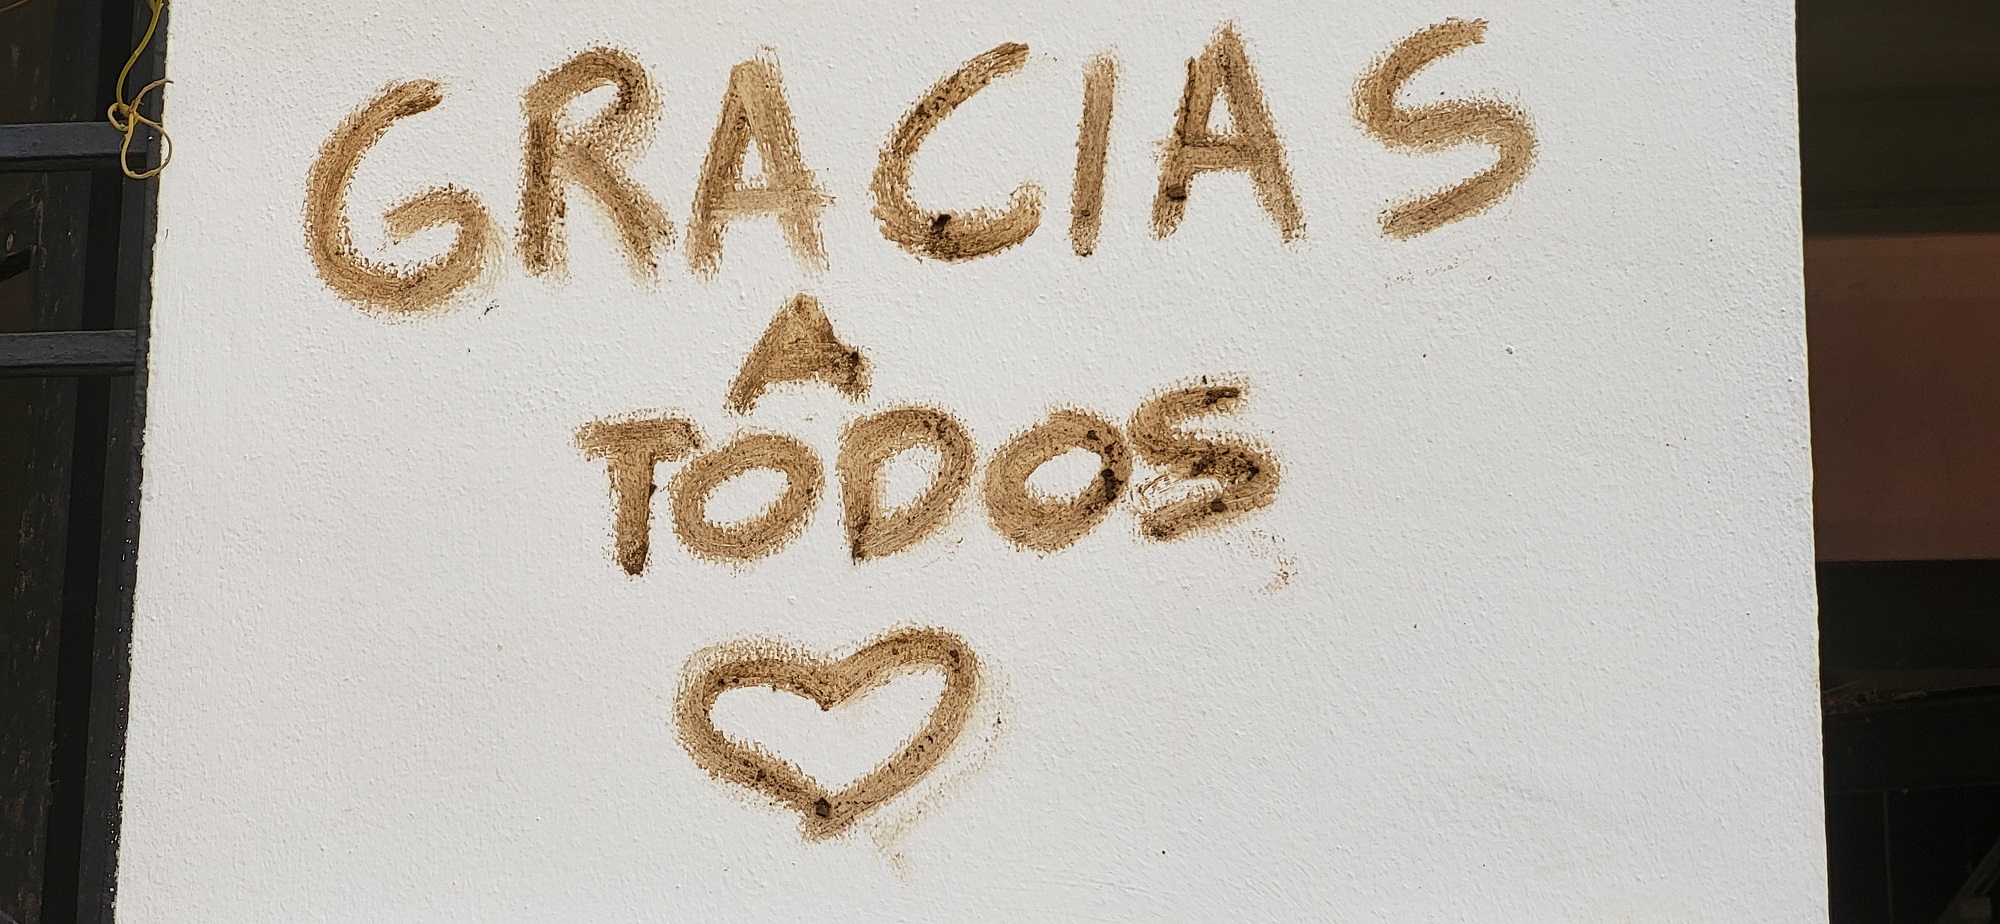 GRACIAS
A
TODOS